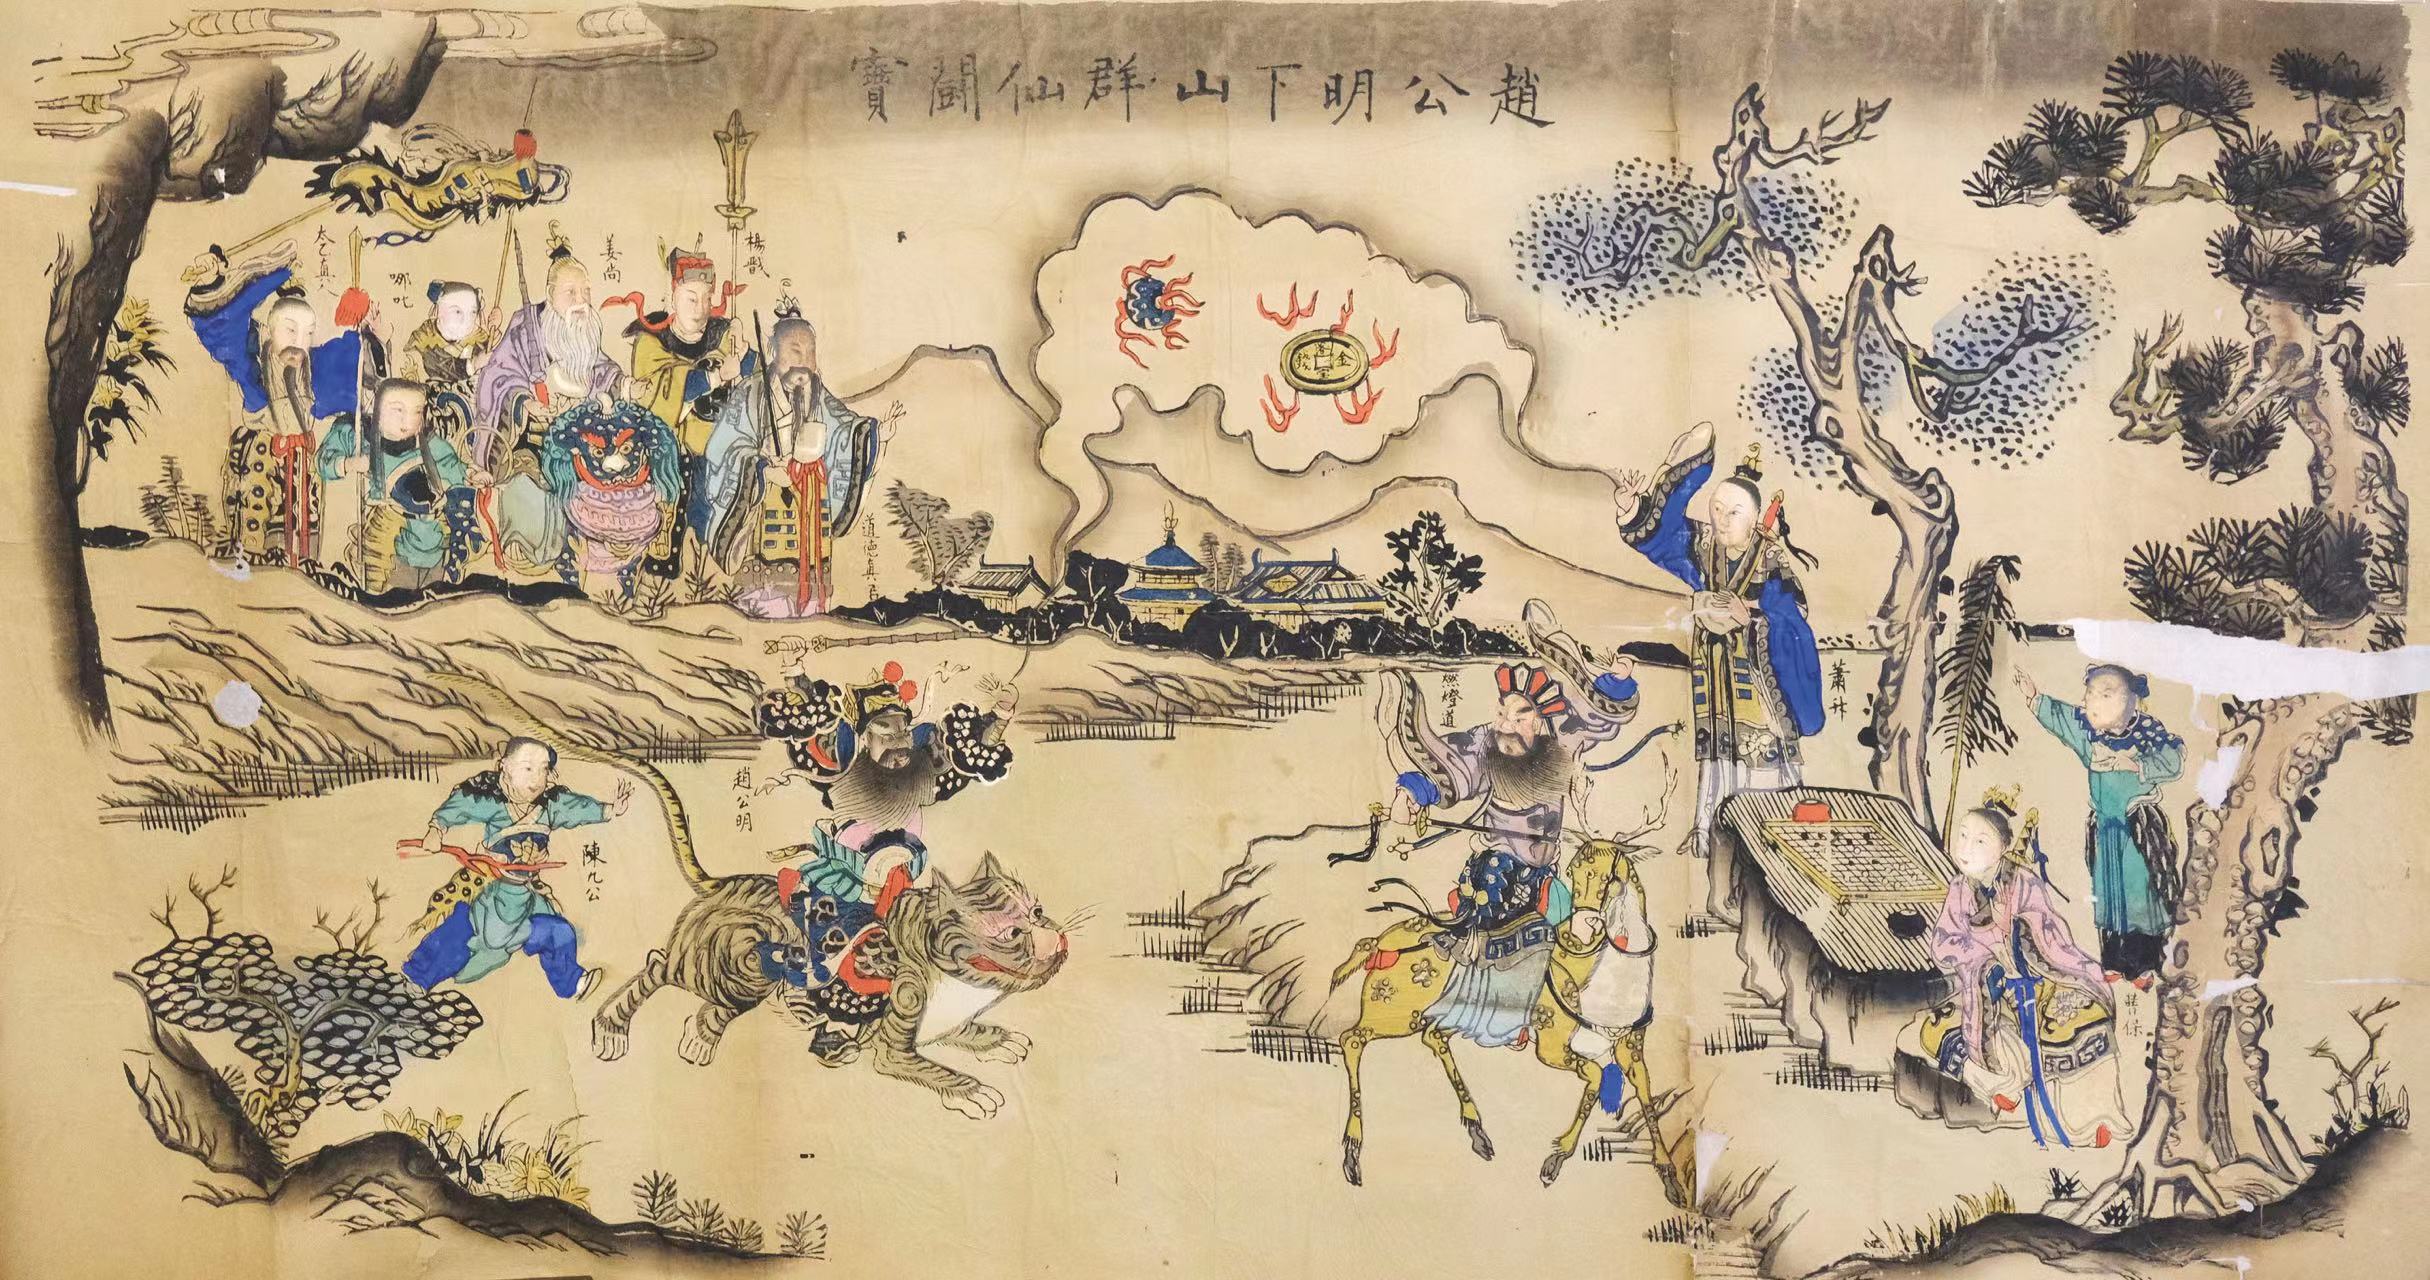 趙公明下山群仙鬪寶
太乙真人
哪吒
姜尚
楊戩
道德真君
落宝金錢
趙公明
陳九公
燃燈道
蕭升
曹保